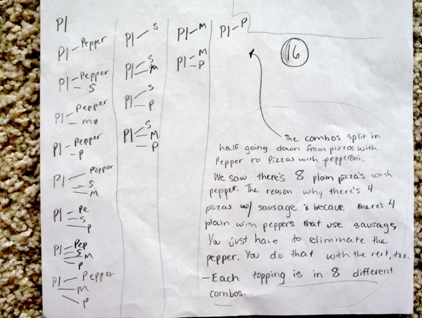 Pl
Pl - Pepper
Pl - Pepper
S
Pl - Pepper
mo
Pl - Pepper
P
Pl - Pepper
S
M
Pl - Pe
S
P
Pl - Pep
S
M
P
Pl - Pepper
M
P
Pl - S
Pl - S
M
Pl - S
P
Pl - S
M
P
Pl - M
Pl - M
P
Pl - P
16
The combos split in
half going down from pizzas with
Pepper to Pizzas with pepperoni.
We saw there's 8 plain pizza's with
pepper. The reason why there's 4
pizzas w/ sausage is becaue there's 4
plain with peppers that use sausage,
You just have to eliminate the
pepper. You do that with the rest, too.
- Each topping is in 8 different
combos.